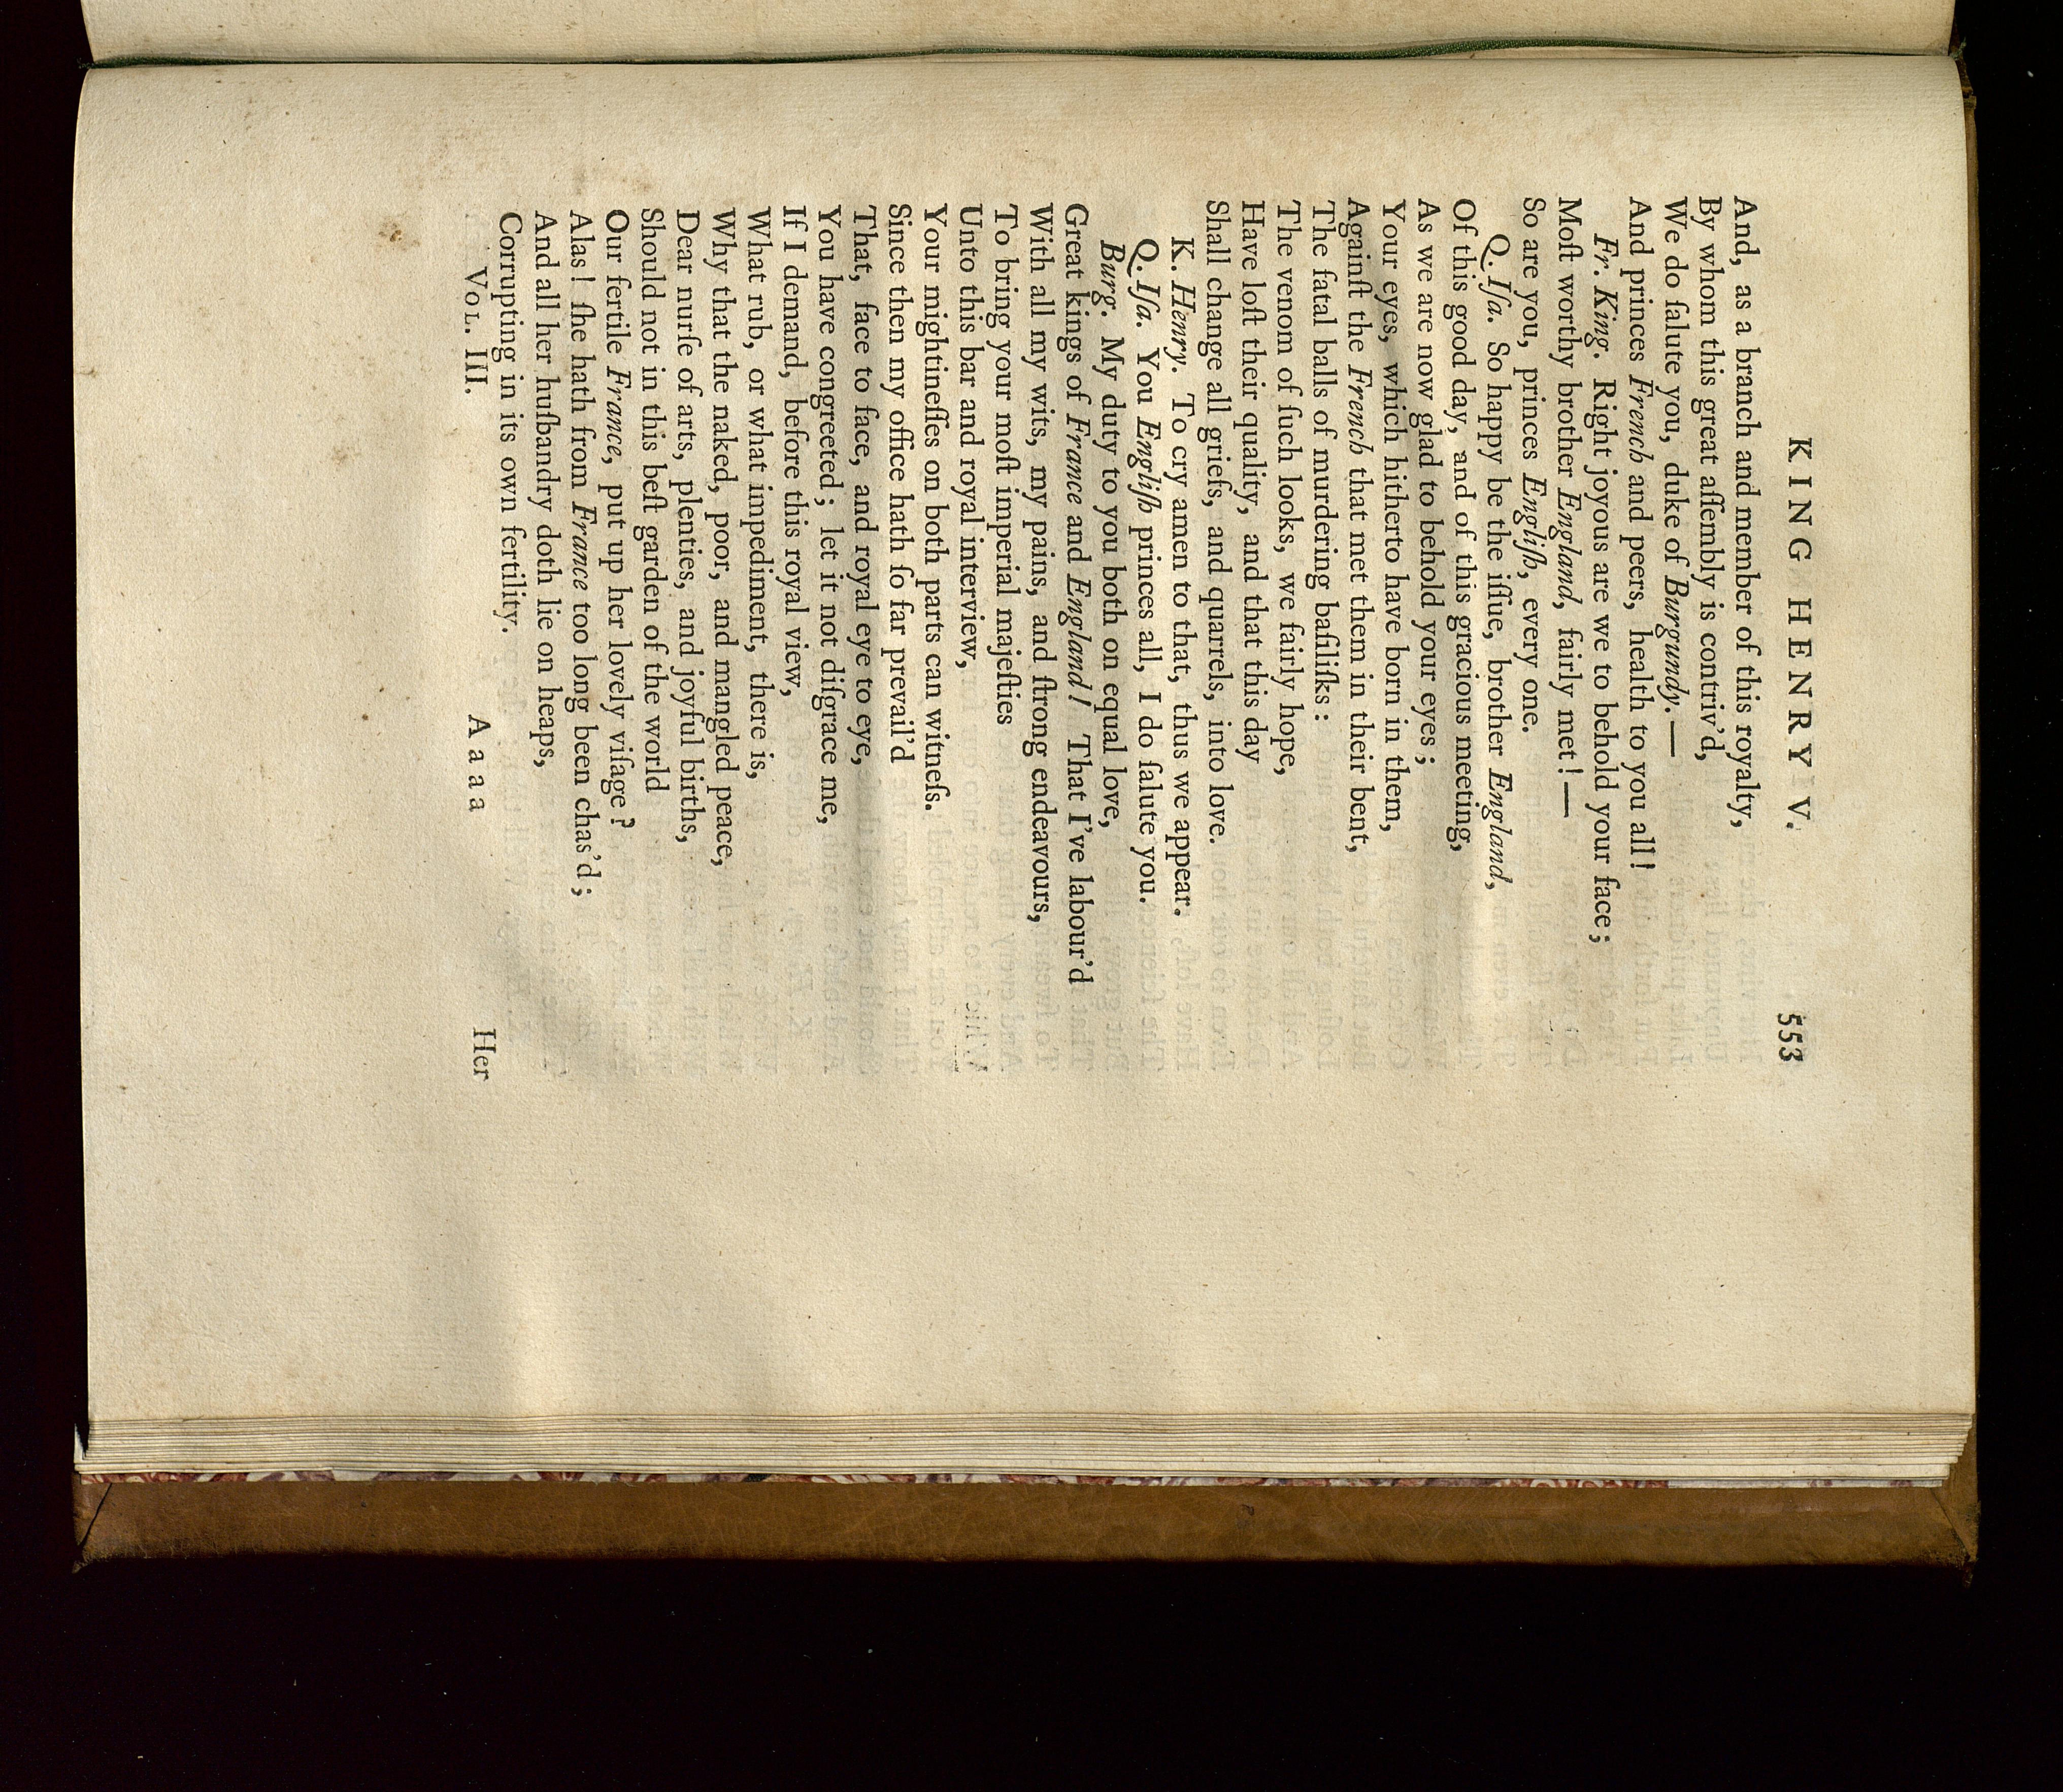 KING HENRY V. 553
And, as a branch and member of this royalty,
By whom this great aſſembly is contriv'd,
We do ſalute you, duke of Burgundy.—
And princes French and peers, health to you all!
Fr. King. Right joyous are we to behold your face;
Moſt worthy brother England, fairly met!—
So are you, princes Engliſh, every one.
Q. Iſa. So happy be the iſſue, brother England,
Of this good day, and of this gracious meeting,
As we are now glad to behold your eyes;
Your eyes, which hitherto have born in them,
Againſt the French that met them in their bent,
The fatal balls of murdering baſiliſks:
The venom of ſuch looks, we fairly hope,
Have loſt their quality, and that this day
Shall change all griefs, and quarrels, into love.
K. Henry. To cry amen to that, thus we appear.
Q. Iſa. You Engliſh princes all, I do ſalute you.
Burg. My duty to you both on equal love,
Great kings of France and England! That I've labour'd
With all my wits, my pains, and ſtrong endeavours,
To bring your moſt imperial majeſties
Unto this bar and royal interview,
Your mightineſſes on both parts can witneſs.
Since then my office hath ſo far prevail'd
That, face to face, and royal eye to eye,
You have congreeted; let it not diſgrace me,
If I demand, before this royal view,
What rub, or what impediment, there is,
Why that the naked, poor, and mangled peace,
Dear nurſe of arts, plenties, and joyful births,
Should not in this beſt garden of the world
Our fertile France, put up her lovely viſage?
Alas! ſhe hath from France too long been chas'd;
And all her huſbandry doth lie on heaps,
Corrupting in its own fertility.
VOL. III. A a a a Her